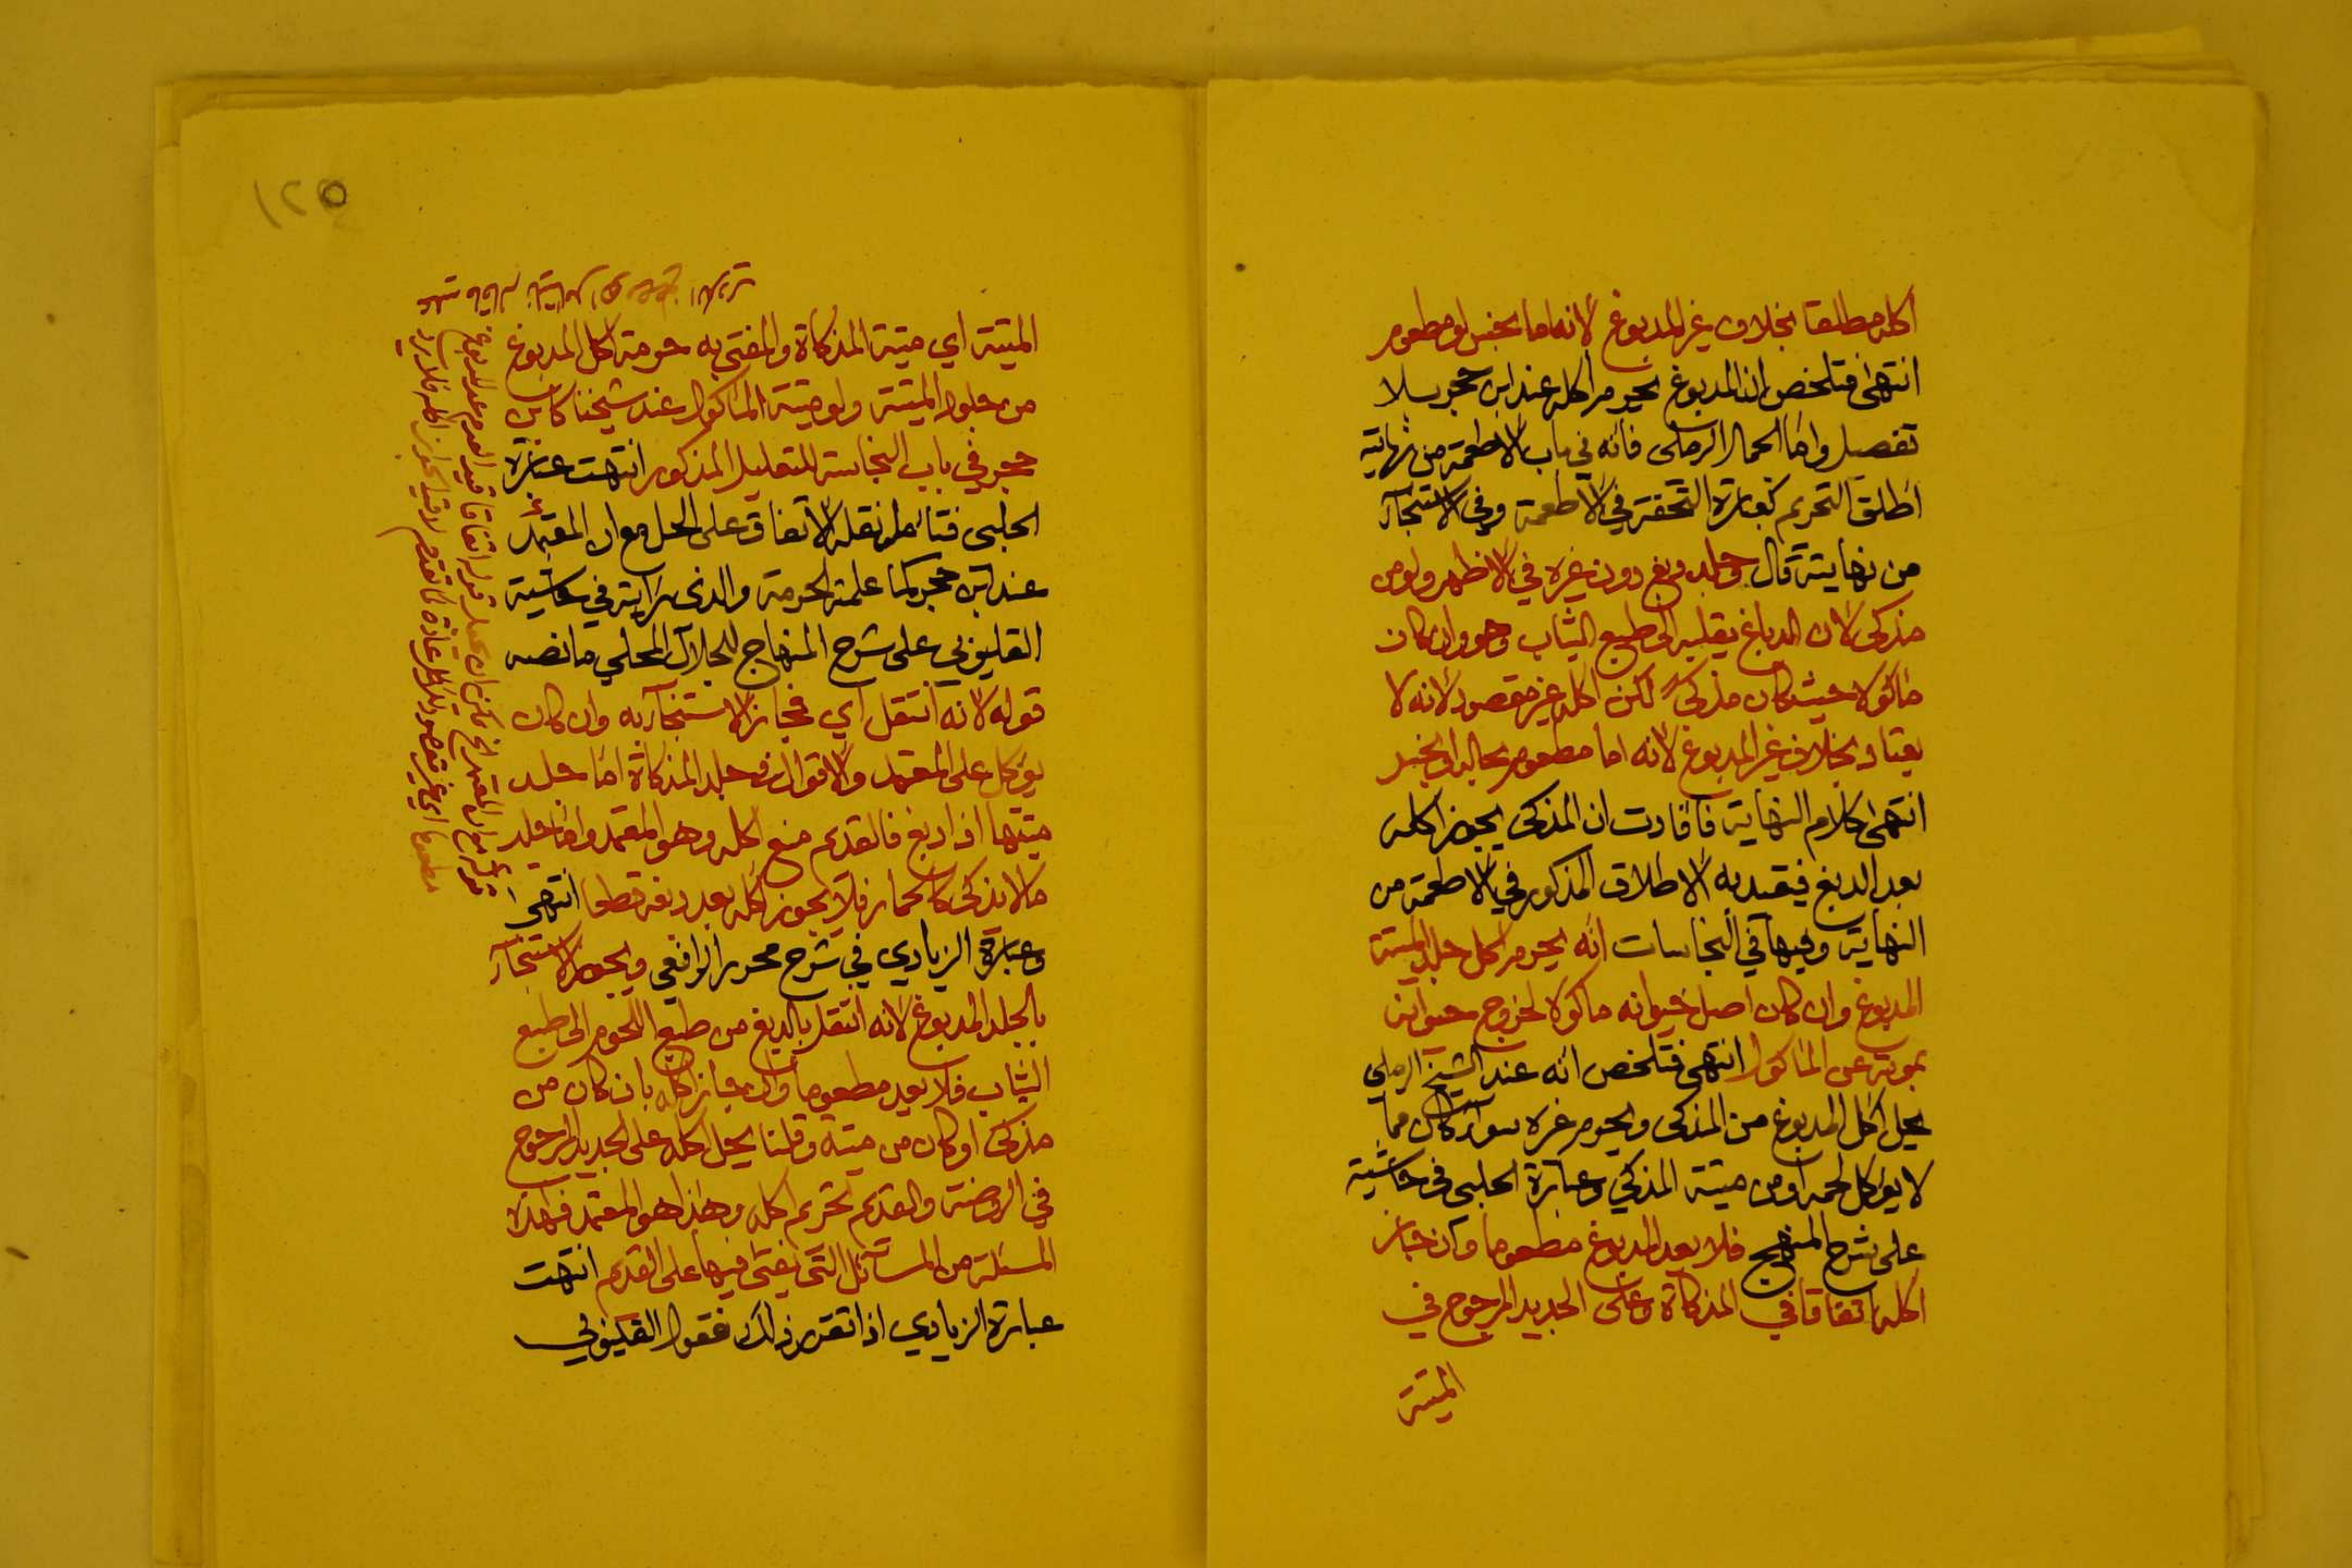 اكله مطلقا بخلاف غير المدبوغ لانه اما نجس او مطعوم
انتهى فتلخص ان المدبوغ يحرم اكله عند ابن حجر بلا
تفصيل واما الجمال الرملي فانه في باب الاطعمة من نهايته
اطلق التحريم كعبارة التحفة في الاطعمة وفي الاستنجآء
من نهايته قال وجلد دبغ دون غيره في الاظهر ولو من
مذكى لان الدباغ يقلبه الى طبع الثياب وهو وان كان
ماكولا حيث كان من مذكى لكن اكله غير مقصود لانه لا
يعتاد بخلاف غير المدبوغ لانه اما مطعوم بحاله او نجس
انتهى كلام النهاية فافادت ان المذكى يجوز اكله
بعد الدبغ فيقيد به الاطلاق المذكور في الاطعمة من
النهاية وفيها في النجاسات انه يحرم اكل جلد الميتة
المدبوغ وان كان اصل حيوانه ماكولا لخروج حيوانه
بموته عن الماكول انتهى فتلخص انه عند الشيخ الرملي
يحل اكل المدبوغ من المذكى ويحرم غيره سواء كان مما
لا يؤكل لحمه او من ميتة المذكى وعبارة الحلبي في حاشيته
على شرح المنهج فلا يعد المدبوغ مطعوما وان جاز
اكله اتفاقا في المذكاة وعلى الجديد المرجوح في
الميتة
الميتة اي ميتة المذكاة والمفتى به حرمة اكل المدبوغ
من جلود الميتة ولو ميتة الماكول عند شيخنا كابن
حجر في باب النجاسة للتعليل المذكور انتهت عبارة
الحلبي فتامل نقله الاتفاق على الحل مع ان المعتمد
عند ابن حجر كما علمته الحرمة والذي رايته في حاشية
القليوبي على شرح المنهاج للجلال المحلي ما نصه
قوله لانه انتقل اي فجاز الاستنجآء به وان كان
يؤكل على المعتمد والاقوال في جلد المذكاة اما جلد
ميتتها اذا دبغ فالقديم منع اكله وهو المعتمد واما جلد
ما لا يذكى كالحمار فلا يجوز اكله بعد دبغه قطعا انتهى
وعبارة الزيادي في شرح محرر الرافعي ويجوز الاستنجآء
بالجلد المدبوغ لانه انتقل بالدبغ من طبع اللحوم الى طبع
الثياب فلا يعد مطعوما وان جاز اكله بان كان من
مذكى او كان من ميتة وقلنا يحل اكله على الجديد المرجوح
في الروضة والقديم تحريم اكله وهذا هو المعتمد فهذه
المسئلة من المسآئل التي يفتى فيها على القديم انتهت
عبارة الزيادي اذا تقرر ذلك فقول القليوبي